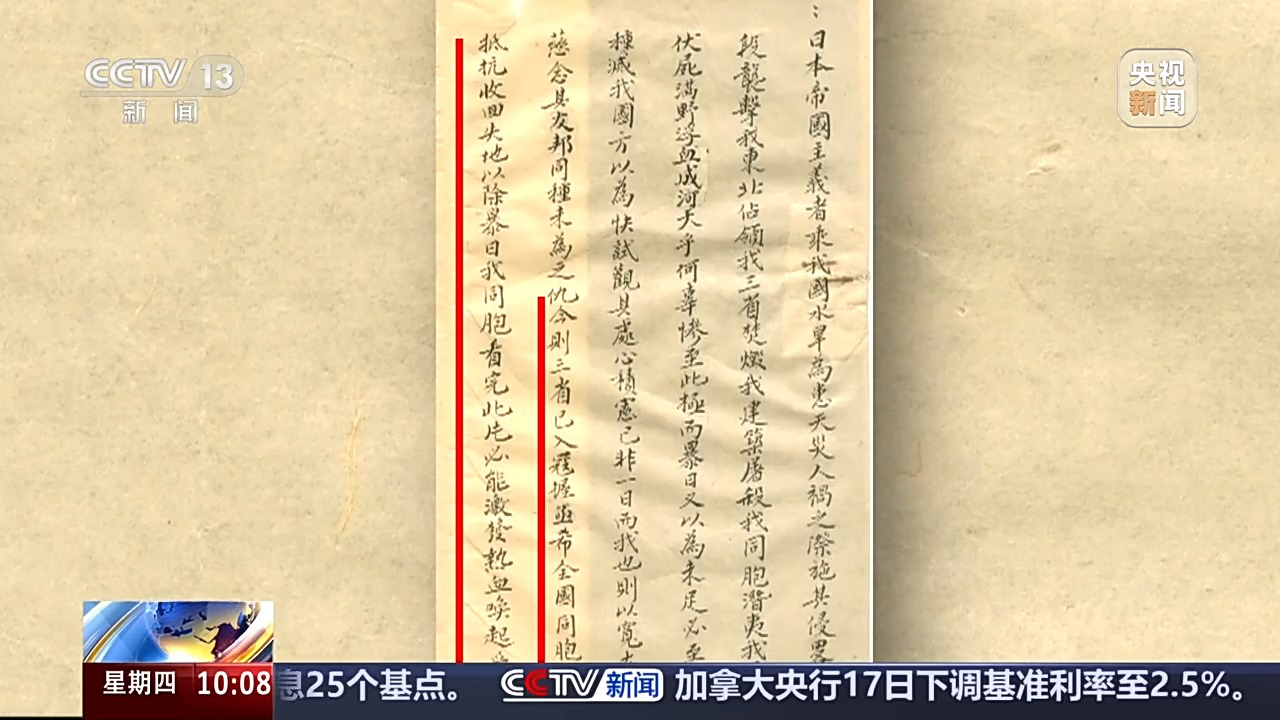 CCTV 13
新闻
央视
新闻
：日本帝國主義者乘我國水旱為患天災人禍之際施其侵畧
段襲擊我東北佔領我三省焚燬我建築屠殺我同胞潛夷我
伏屍滿野浮血成河天乎何辜慘至此極而暴日又以為未足必至
種滅我國方以為快試觀其處心積慮已非一日而我也則以寬大
慈念其友邦同種未為之仇今則三省已入寇握亟希全國同胞
抵抗收回失地以除暴日我同胞看完此片必能激發熱血喚起
星期四 10:08 息25个基点。 CCTV新闻 加拿大央行17日下调基准利率至2.5%。